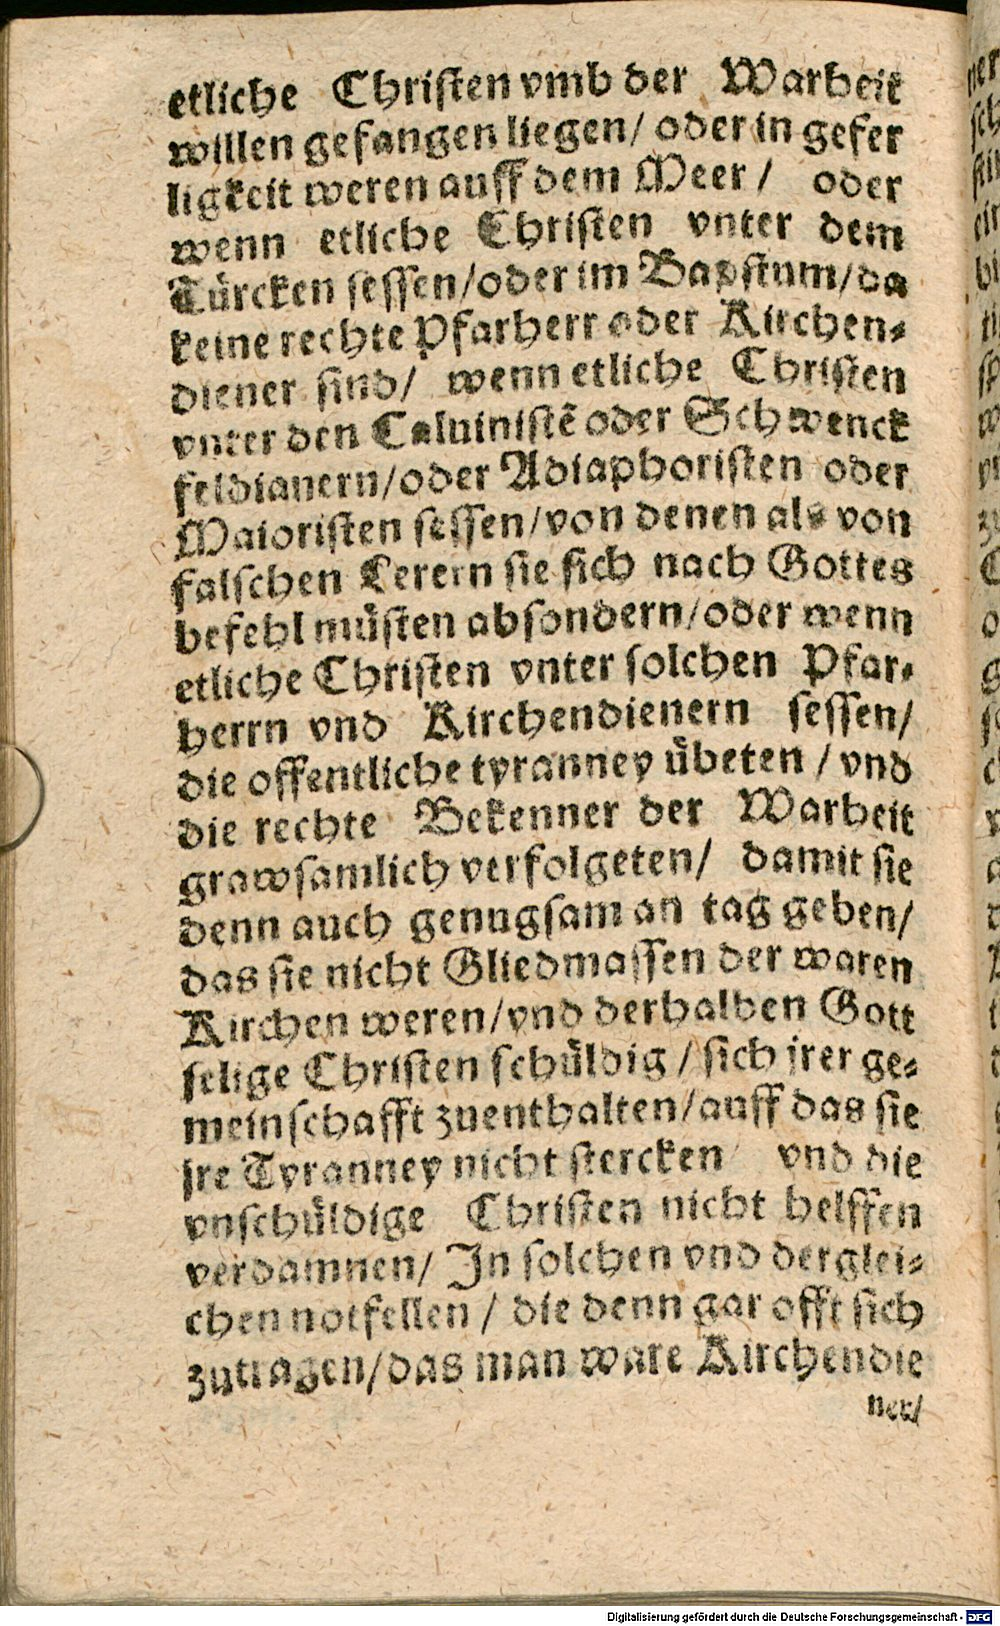 etliche Christen vmb der Warheit
willen gefangen liegen/ oder in gefer
ligkeit weren auff dem Meer / oder
wenn etliche Christen vnter dem
Türcken sessen/oder im Bapstum/da
keine rechte Pfarherr oder Kirchen-
diener sind/ wenn etliche Christen
vnter den Caluinistẽ oder Schwenck
feldianern/oder Adiaphoristen oder
Maioristen sessen/von denen als von
falschen Lerern sie sich nach Gottes
befehl müsten absondern/oder wenn
etliche Christen vnter solchen Pfar-
herrn vnd Kirchendienern sessen/
die offentliche tyranney übeten / vnd
die rechte Bekenner der Warheit
grawsamlich verfolgeten/ damit sie
denn auch genugsam an tag geben/
das sie nicht Gliedmassen der waren
Kirchen weren/vnd derhalben Gott
selige Christen schüldig / sich jrer ge-
meinschafft zuenthalten/auff das sie
jre Tyranney nicht stercken / vnd die
vnschüldige Christen nicht helffen
verdamnen/ In solchen vnd derglei-
chen notfellen / die denn gar offt sich
zutragen/das man ware Kirchendie
ner/
Digitalisierung gefördert durch die Deutsche Forschungsgemeinschaft - DFG